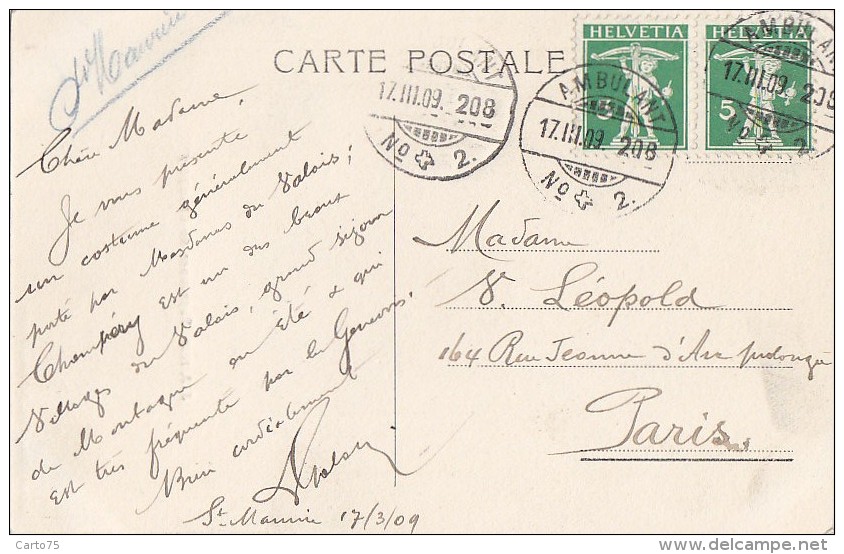 St Maurice
CARTE POSTALE
HELVETIA
HELVETIA
5
AMBULANT
17.III.09. 208
No 2.
AMBULANT
17.III.09. 208
No 2.
AMBULANT
17.III.09. 208
No 2.
Chère Madame,
Je vous présente
un costume généralement
porté par Mesdames du Valais;
Champéry est un des beaux
Villages du Valais, grand séjour
de Montagne en Été & qui
est très fréquenté par les Genevois.
Bien cordialement
St Maurice 17/3/09
Madame
V. Léopold
164 Rue Jeanne d'Arc prolongée
Paris
Carto75
www.delcampe.net